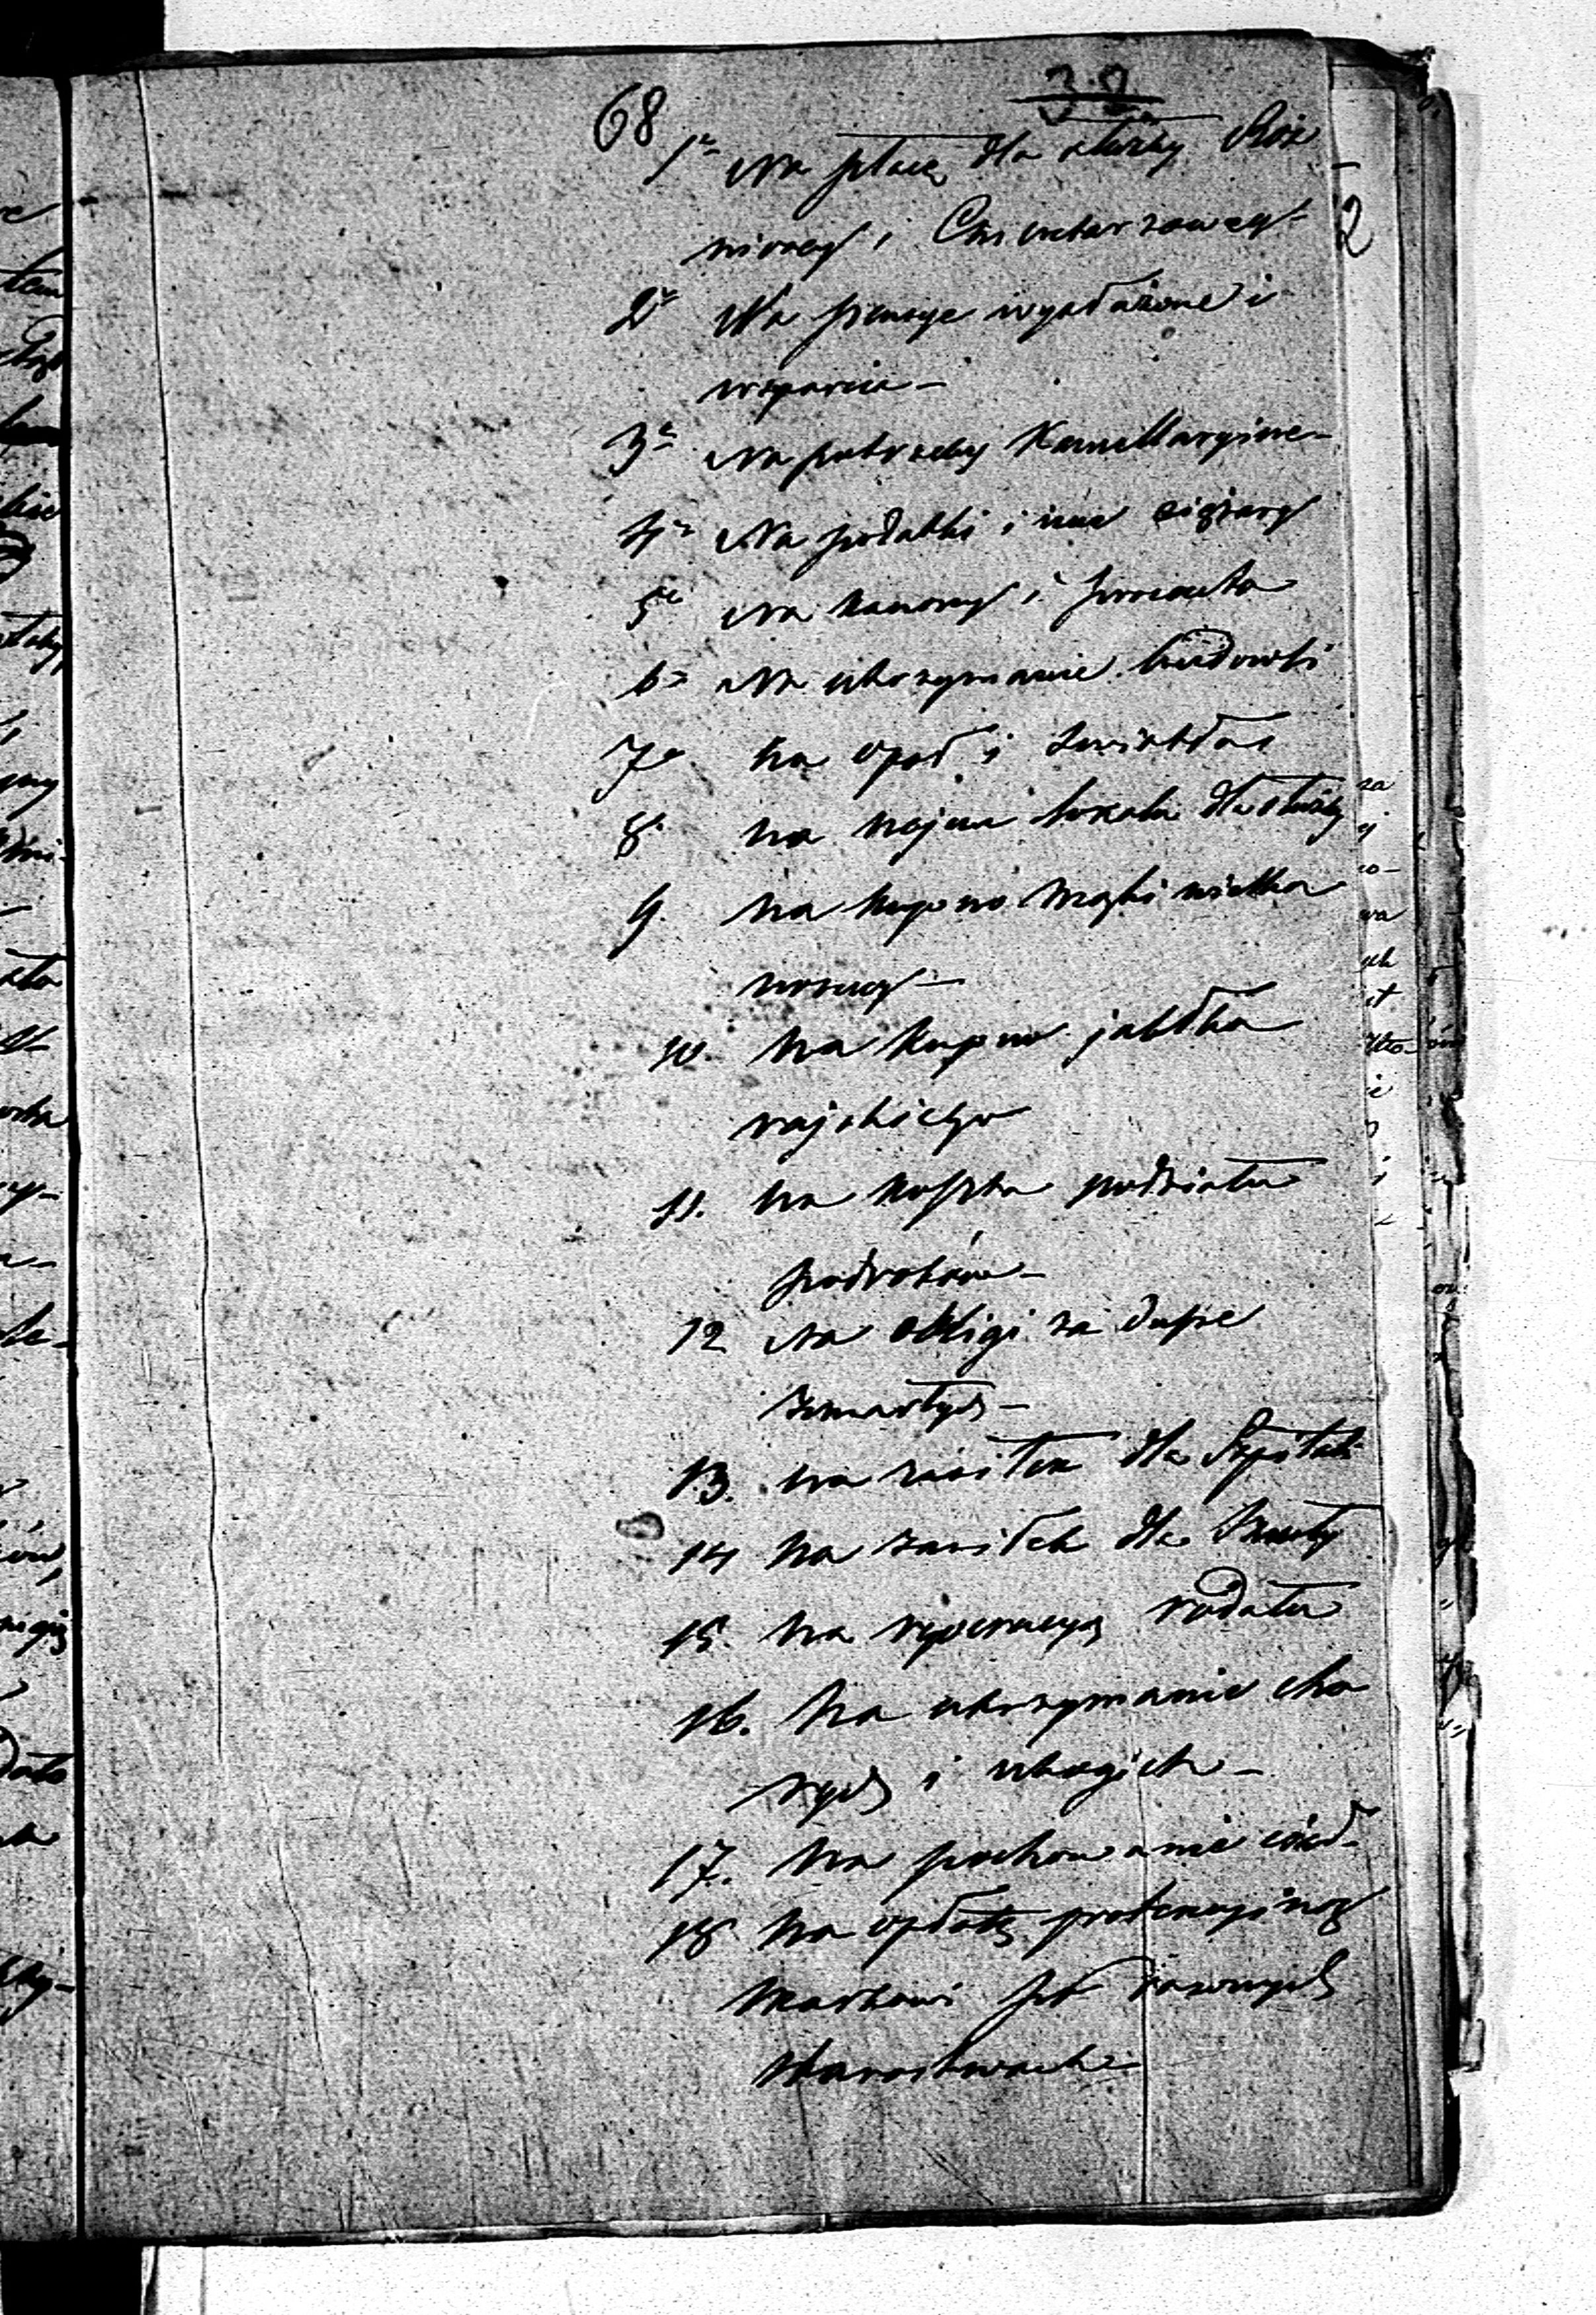 68
1e Na płacę dla służby Boż
niczej i Cmentarzowej
2e Na pensye wysłużone i
wsparcia –
3e Na potrzeby Kancellaryine –
4e Na podatki i inne ciężary
5e Na kanony i procenta
6e Na utrzymanie budowli
7e na opał i światło
8. na najem lokalu dla służby
9. na kupno mąki wielka
nocnej –
10. na kupno jabłka
rajskiego
11. na koszta podziału
podrobów –
12 Na obligi za dusze
zmarłych –
13. na zasiłek dla Szpitala
14 na zasiłek dla Szkoły
15. na reperacyą rodału
16. Na utrzymanie cho
rych i ubogich –
17. na pochowanie ciał –
18 na opłatę protekcyiną
po dawnych
starostwach –